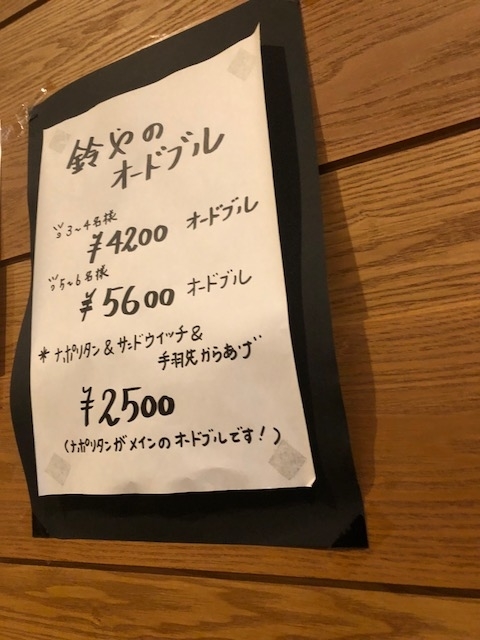 鈴やの
オードブル
3~4名様
¥4200 オードブル
5~6名様
¥5600 オードブル
*ナポリタン&サンドウイッチ&
手羽先からあげ
¥2500
(ナポリタンがメインのオードブルです!)